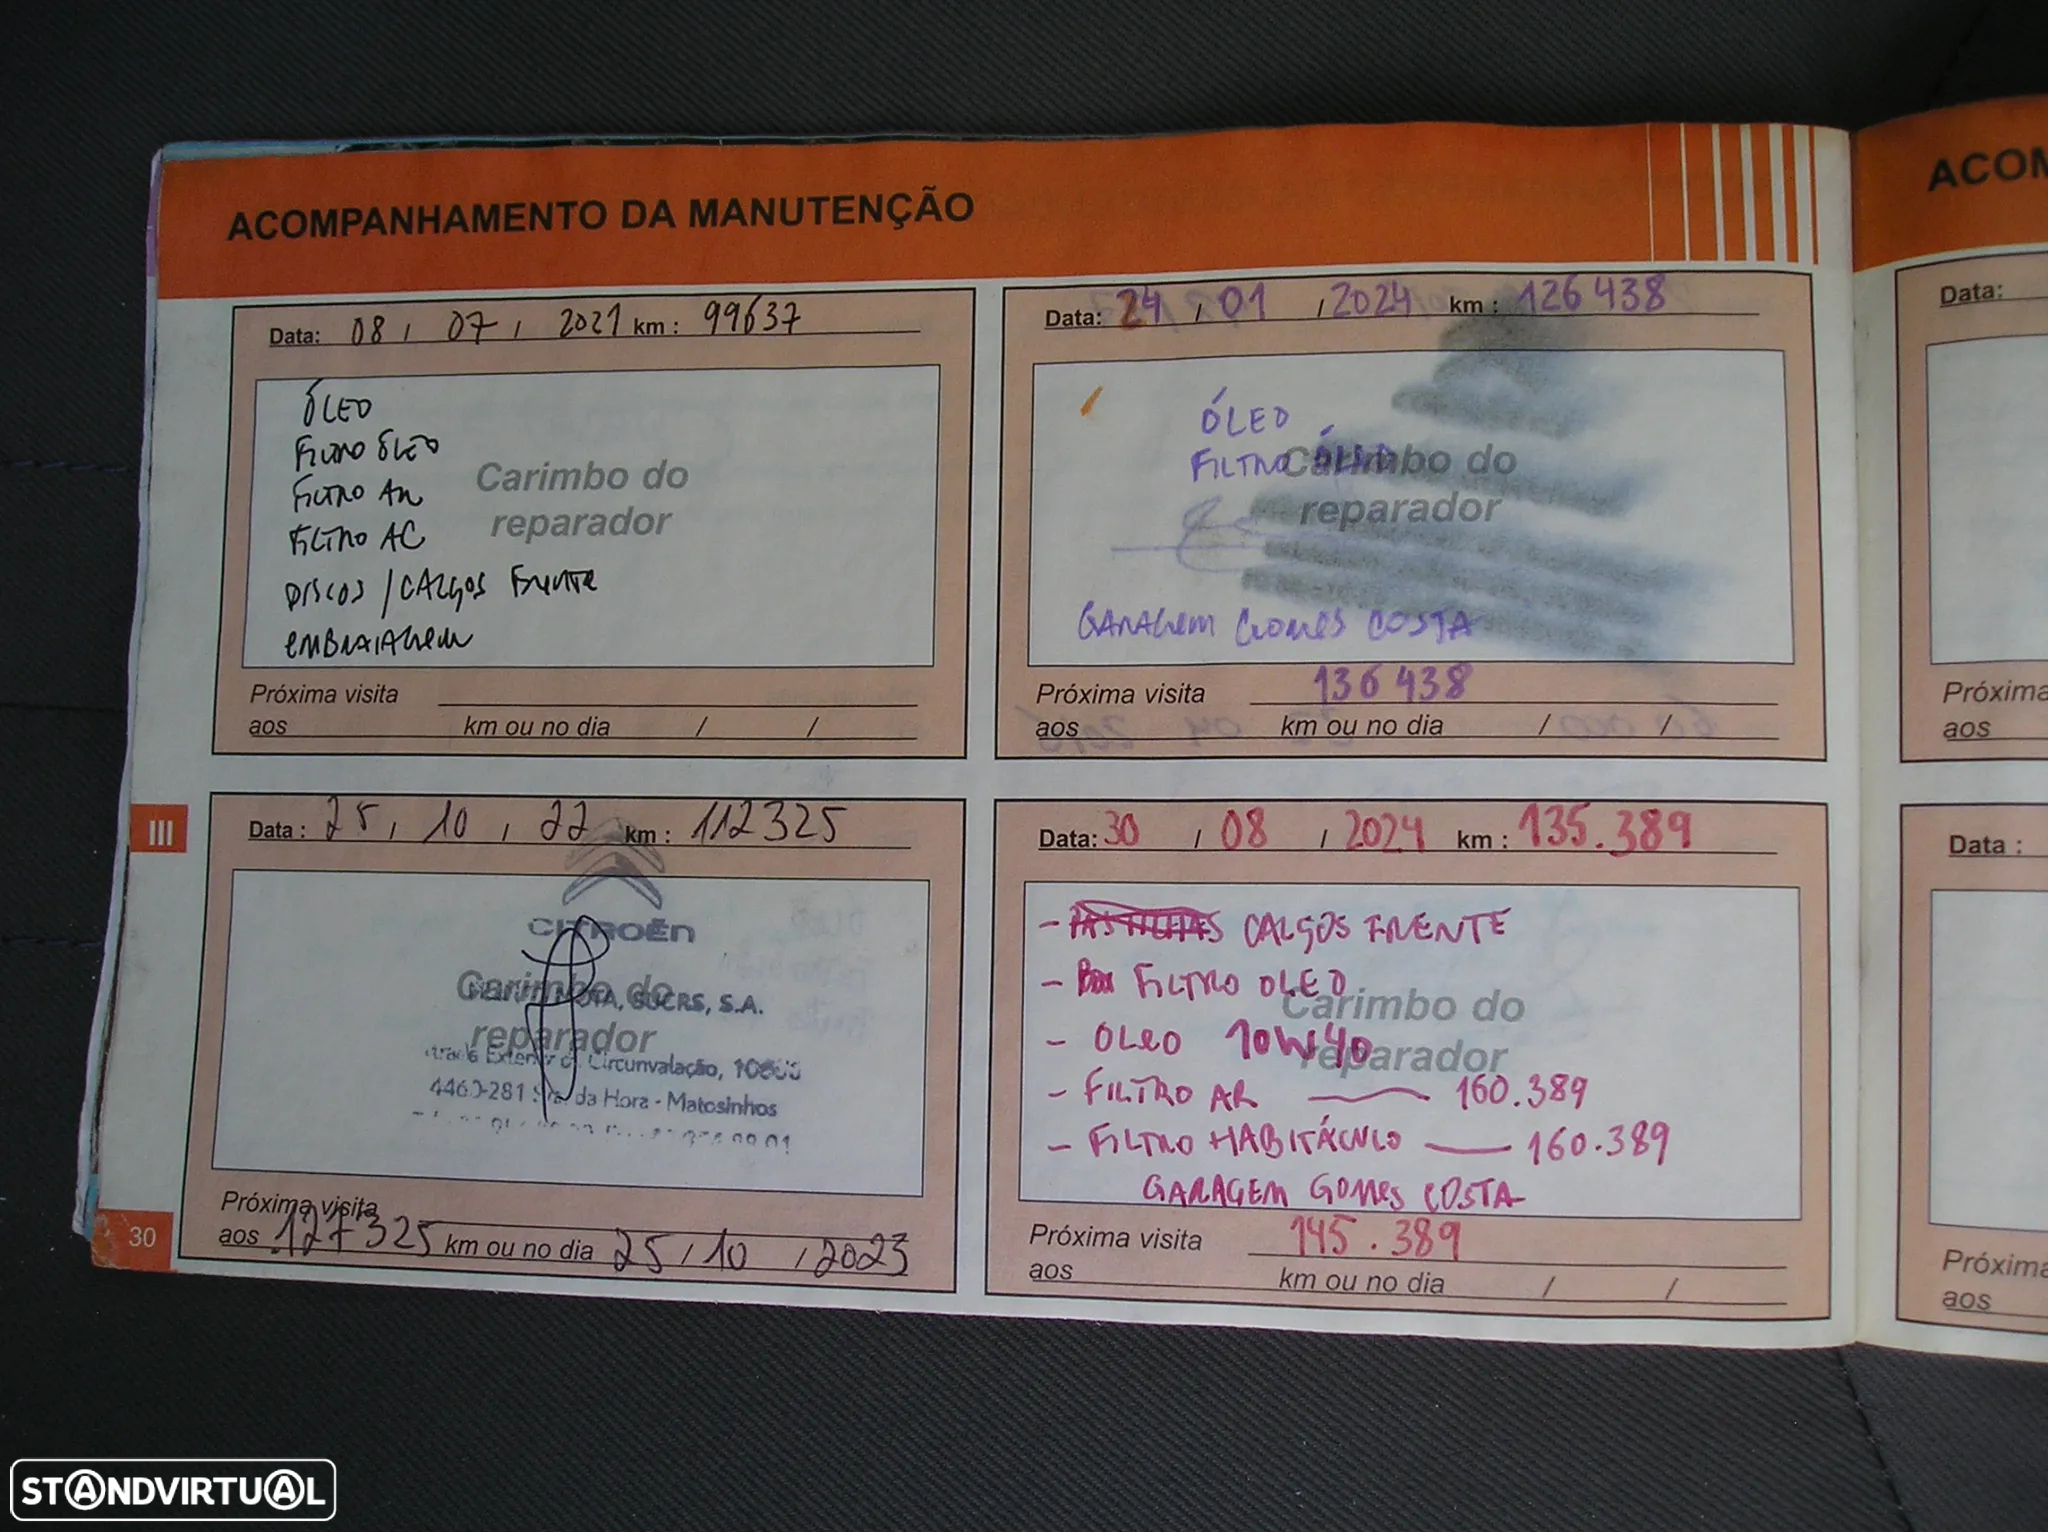 ACOMPANHAMENTO DA MANUTENÇÃO
Data: 08 / 07 / 2021 km : 99637
ÓLEO
FILTRO ÓLEO
FILTRO AR
FILTRO AC
DISCOS / CALÇOS FRENTE
EMBRAIAGEM
Carimbo do
reparador
Próxima visita
aos km ou no dia / /
Data : 25 / 10 / 22 km : 112325
CITROËN
Carimbo do
reparador
MOTA, SUCRS, S.A.
Circunvalação,
4460-281 da Hora - Matosinhos
Próxima visita
aos 127325 km ou no dia 25 / 10 / 2023
Data: 24 / 01 / 2024 km : 126438
ÓLEO
FILTRO
Carimbo do
reparador
GARAGEM GOMES COSTA
Próxima visita 136438
aos km ou no dia / /
Data: 30 / 08 / 2024 km : 135.389
- CALÇOS FRENTE
- FILTRO OLEO
- OLEO 10W40
- FILTRO AR — 160.389
- FILTRO HABITÁCULO — 160.389
GARAGEM GOMES COSTA
Carimbo do
reparador
Próxima visita 145.389
aos km ou no dia / /
III
30
ACOM
Data:
Próxima
aos
Data :
Próxima
aos
STANDVIRTUAL